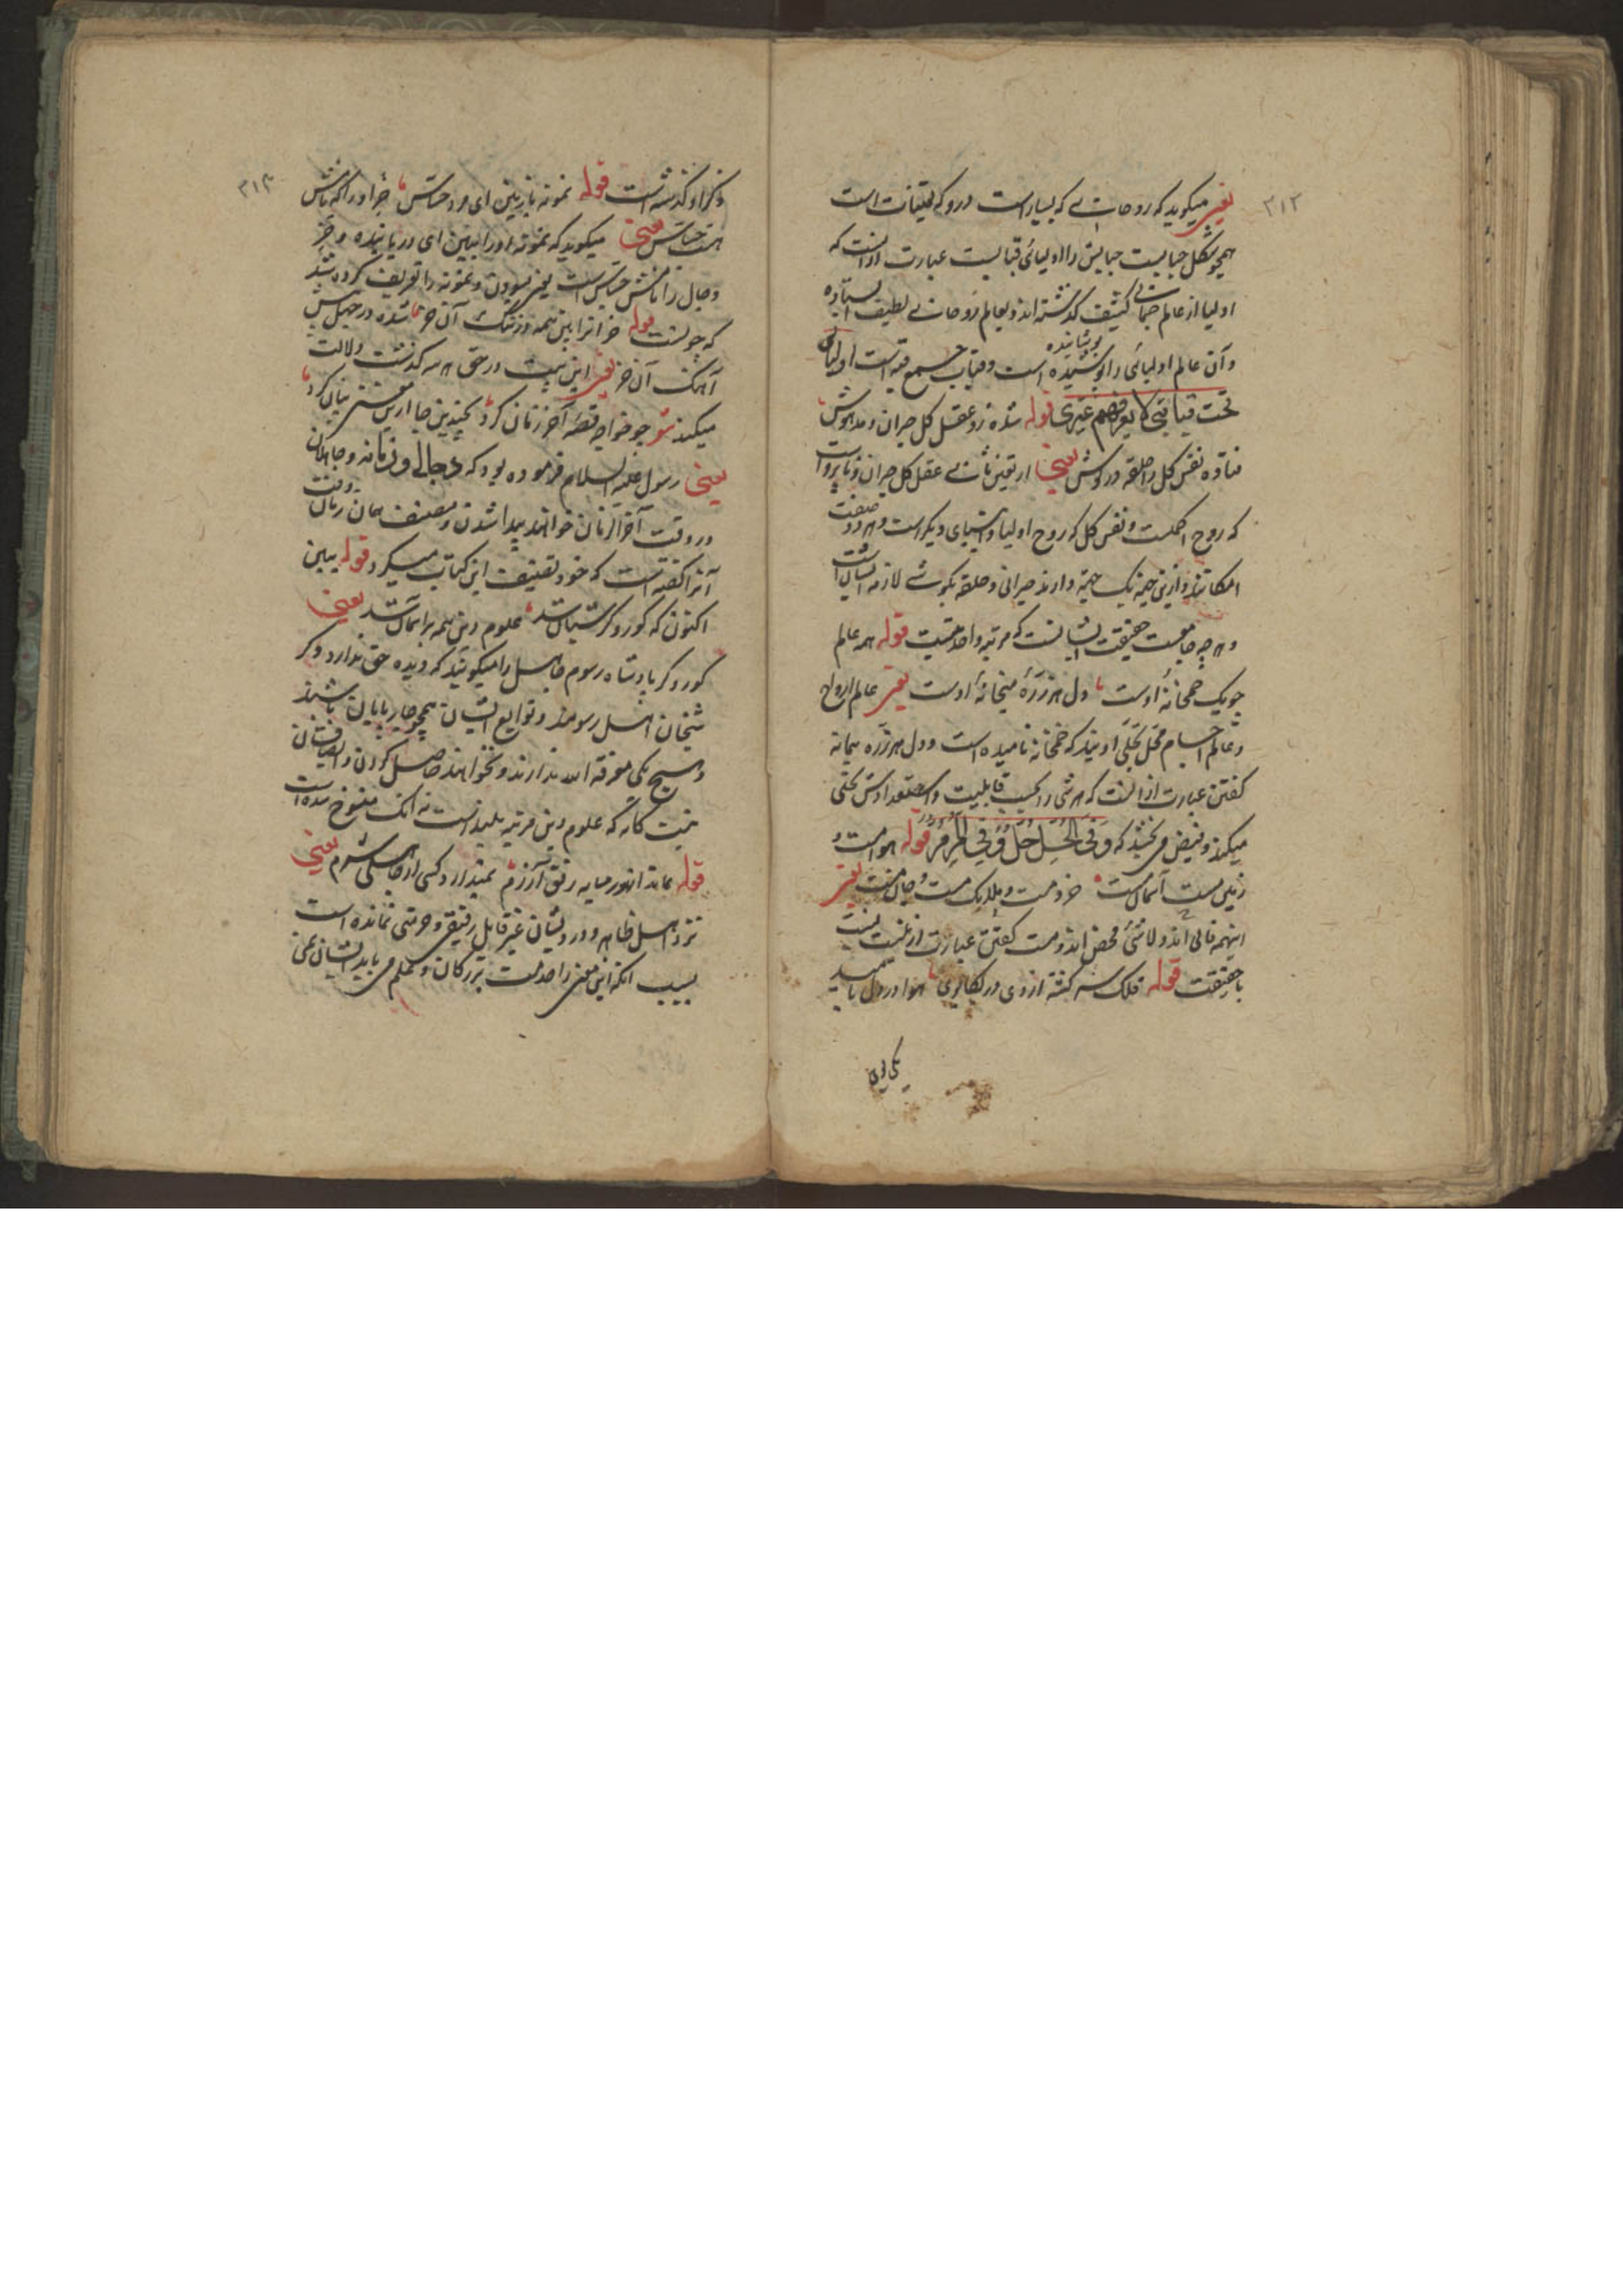 ۳۱۲
یعنی میگوید که روحانی که بسیار است درو که تعینات است
همچو شکل حبابیست حبابش را اولیائی قبابیست عبارت ازانست که
اولیا از عالم جسمانی کثیف گذشته اند و بعالم روحانی لطیف استاده
پوشانیده
و آن عالم اولیائی را پوشیده است و قباب جمع قبه است اولیائی
تحت قبابی لا یعرفهم غیری قوله شده زو عقل کل حیران و مدهوش
فتاده نفس کل را حلقه در گوش یعنی از تعین ثانی عقل کل حیران
که روح اعظمست و نفس کل که روح اولیا و اشیای دیگر است و هر دو صفت
امکانند و ازین جهة یک جهة دارند حیرانی و حلقه بگوشی لازمه ایشان است
و هر چه جامعست حقیقت ایشانست که مرتبه واحدیتست قوله همه عالم
چو یک خمخانهٔ اوست دل هر ذرهٔ میخانهٔ اوست یعنی عالم ارواح
و عالم اجسام محل تجلی اویند که خمخانه نامیده است و دل هر ذره پیمانه
گفتن عبارت ازانست که هر شی را بحسب قابلیت و استعدادش تجلی
میکند و فیض می بخشد که و فی الخل خل و فی المر مر قوله هوا مست و
زمین مست آسمان مست خرد مست و ملایک مست و جان مست یعنی
اینهمه فانی اند و لاشئ محض اند و مست گفتن عبارت از غیبت نیست
با حقیقت قوله فلک سرگشته از وی در تکاپوی هوا در دل بامید
یکی بوی
۳۱۳
ذکر او گذشته است قوله نمونه باز بین ای مرد حساس خر او را که نامش
هست جساس یعنی میگوید که نمونه او را ببین ای دریابنده و خر
دجال را نامش جساس است یعنی و نمونه را تعریف کرده شد
که چونست قوله خرانرا بین همه در تنگ آن خر شده در جهل پیش
آهنگ آن خر یعنی این بیت در حق هر سه گذشت دلالت
میکند قوله چو خواجه قصهٔ آخر زمان کرد بچندین جا ازین معنی بیان کرد
یعنی رسول علیه السلام فرموده بود که دجالی و زمانه و جاهلان
در وقت آخر الزمان خواهند پیدا شدن و مصنف همان زمان وقت
آنرا گفته است که خود تصنیف این کتاب میکرد قوله ببین
اکنون که کور و کر شبان شد علوم دین همه بر آسمان شد یعنی
کور و کر پادشاه رسوم جاهل را میگویند که دیده حق ندارد و کر
شیخان اهل رسومند و توابع ایشان همچو چارپایان باشند
و هیچ یکی معرفة الله ندارند و نخواهند حاصل کردن
نیت گاه که علوم دین مرتبه بلند است نه آنکه منسوخ شده است
قوله نماند اندر میانه رفق و آزرم نمیدارد کسی از جاهلی شرم یعنی
نزد اهل ظاهر و درویشان غیر قابل رفیقی و حرمتی نمانده است
بسبب آنکه این معنی را خدمت بزرگان و تعلم می باید ایشان نمی